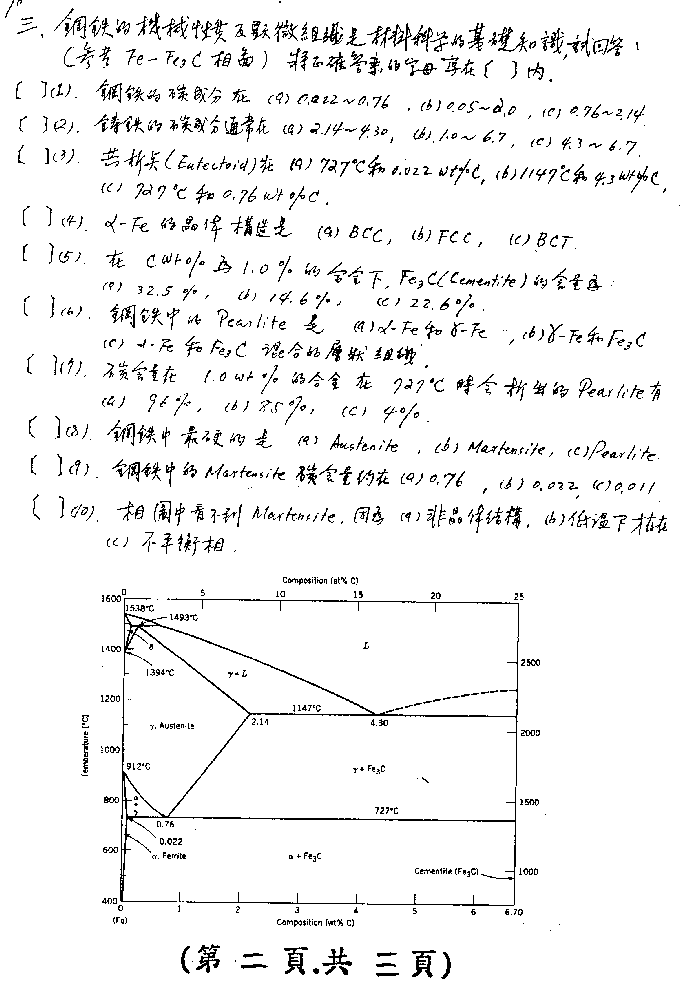 三、鋼鐵的機械性質及顯微組織是材料科學的基礎知識,試回答:
(參考 Fe-Fe3C 相圖) 將正確答案的字母寫在〔 〕內.
〔 〕(1). 鋼鐵的碳成分在 (a) 0.022~0.76 , (b) 0.05~2.0 , (c) 0.76~2.14
〔 〕(2). 鑄鐵的碳成分通常在 (a) 2.14~4.30, (b) 1.0~6.7, (c) 4.3~6.7.
〔 〕(3). 共析点(Eutectoid)在 (a) 727℃和0.022 wt%C, (b) 1147℃和4.3 wt%C,
(c) 727℃和0.76 wt%C.
〔 〕(4). α-Fe 的晶体構造是 (a) BCC, (b) FCC, (c) BCT.
〔 〕(5). 在 C wt% 為 1.0% 的合金下, Fe3C(Cementite)的含量為:
(a) 32.5%, (b) 14.6%, (c) 22.6%.
〔 〕(6). 鋼鐵中的 Pearlite 是 (a) α-Fe和γ-Fe , (b) γ-Fe和Fe3C
(c) α-Fe和Fe3C 混合的層狀組織.
〔 〕(7). 碳含量在 1.0 wt% 的合金在 727℃ 時會析出的 Pearlite 有
(a) 96%, (b) 85%, (c) 4%.
〔 〕(8). 鋼鐵中最硬的是 (a) Austenite , (b) Martensite, (c) Pearlite.
〔 〕(9). 鋼鐵中的 Martensite 碳含量約在 (a) 0.76 , (b) 0.022, (c) 0.011
〔 〕(10). 相圖中看不到 Martensite, 因為 (a) 非晶体結構, (b) 低溫下才存在
(c) 不平衡相.
Composition (at% C)
0 5 10 15 20 25
1600
1538℃
1493℃
L
δ
1400
1394℃
γ+L
2500
1200
1147℃
2.14
4.30
2000
γ, Austenite
Temperature (℃)
1000
912℃
γ + Fe3C
800
α + γ
727℃
1500
0.76
0.022
600
α, Ferrite
α + Fe3C
Cementite (Fe3C)
1000
400
0 1 2 3 4 5 6 6.70
(Fe)
Composition (wt% C)
(第 二 頁.共 三 頁)